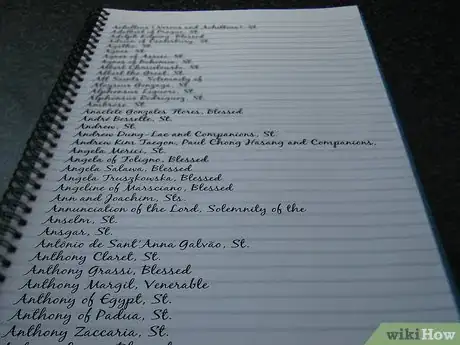 Achilleus (Nereus and Achilleus), St.
Adalbert of Prague, St.
Adolph Kolping, Blessed
Adrian of Canterbury, St.
Agatha, St.
Agnes, St.
Agnes of Assisi, St.
Agnes of Bohemia, St.
Albert Chmielowski, St.
Albert the Great, St.
All Saints, Solemnity of
Aloysius Gonzaga, St.
Alphonsus Liguori, St.
Alphonsus Rodriguez, St.
Ambrose, St.
Anacleto Gonzales Flores, Blessed
André Bessette, St.
Andrew, St.
Andrew Dung-Lac and Companions, St.
Andrew Kim Taegon, Paul Chong Hasang and Companions,
Angela Merici, St.
Angela of Foligno, Blessed
Angela Salawa, Blessed
Angela Truszkowska, Blessed
Angeline of Marsciano, Blessed
Ann and Joachim, Sts.
Annunciation of the Lord, Solemnity of the
Anselm, St.
Ansgar, St.
Antônio de Sant'Anna Galvão, St.
Anthony Claret, St.
Anthony Grassi, Blessed
Anthony Margil, Venerable
Anthony of Egypt, St.
Anthony of Padua, St.
Anthony Zaccaria, St.
wikiHow